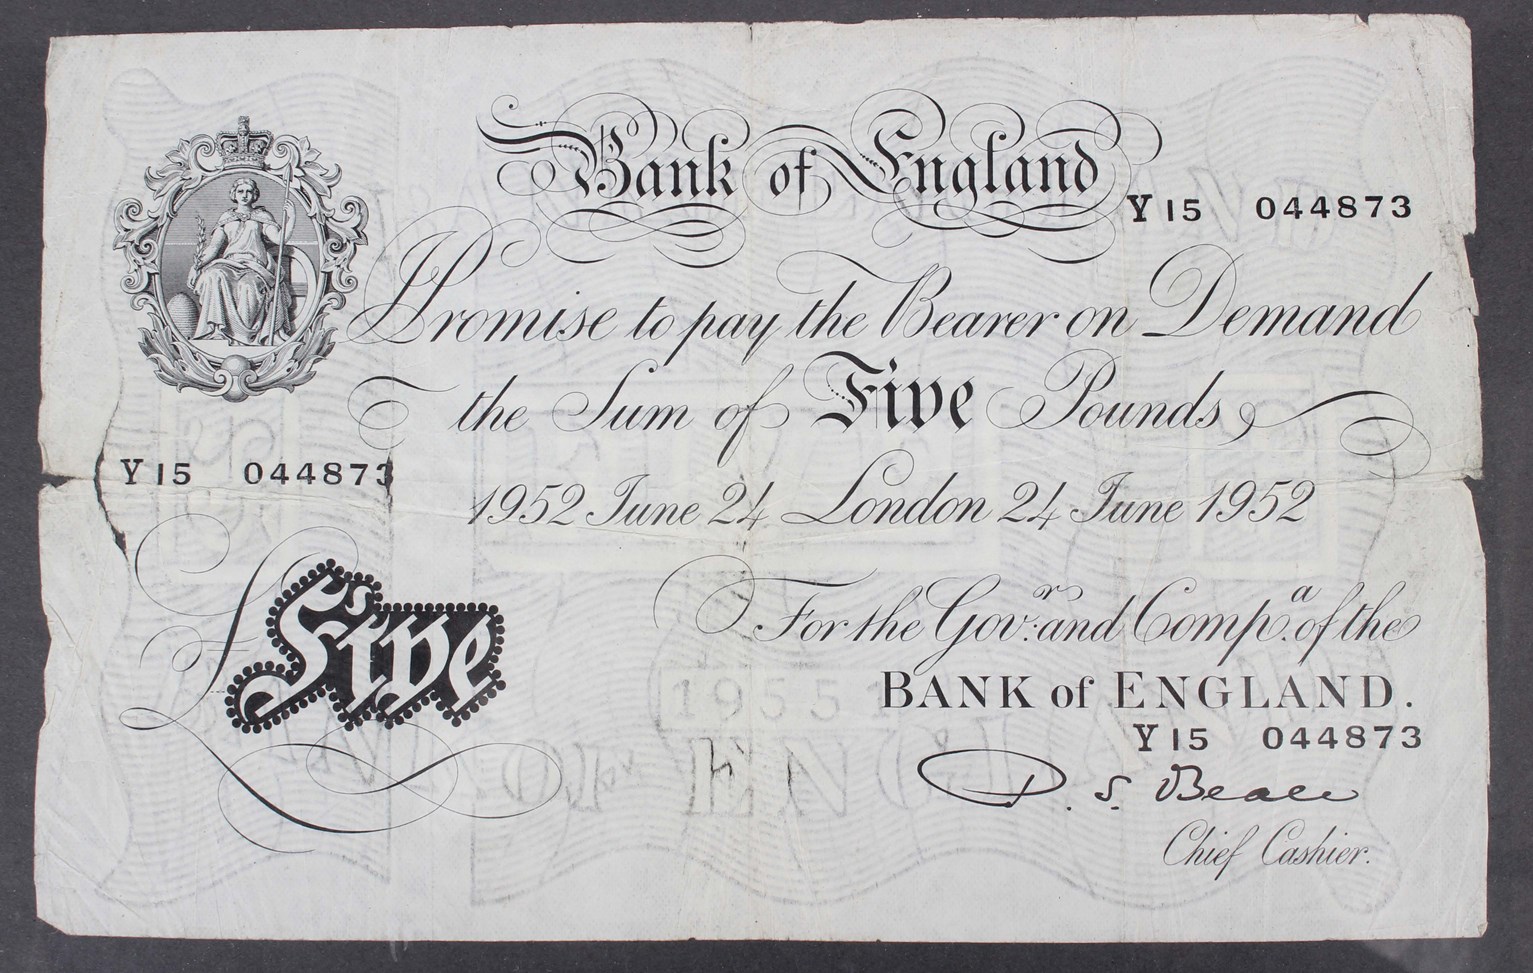 Bank of England
Y15 044873
I Promise to pay the Bearer on Demand
the Sum of Five Pounds
Y15 044873
1952 June 24 London 24 June 1952
£ Five
For the Govr. and Compa. of the
BANK of ENGLAND.
Y15 044873
P. S. Beale
Chief Cashier.